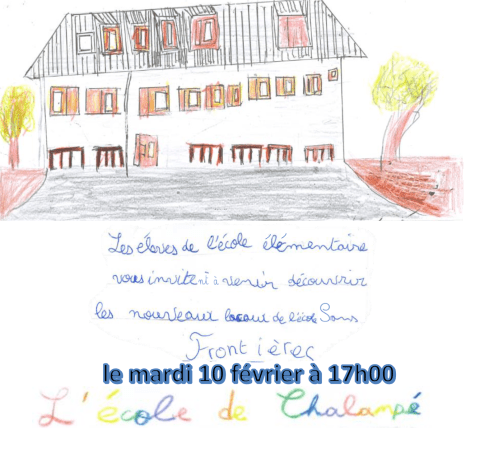 Les élèves de l'école élémentaire
vous invitent à venir découvrir
les nouveaux locaux de l'école Sans
Frontières
le mardi 10 février à 17h00
L'école de Chalampé